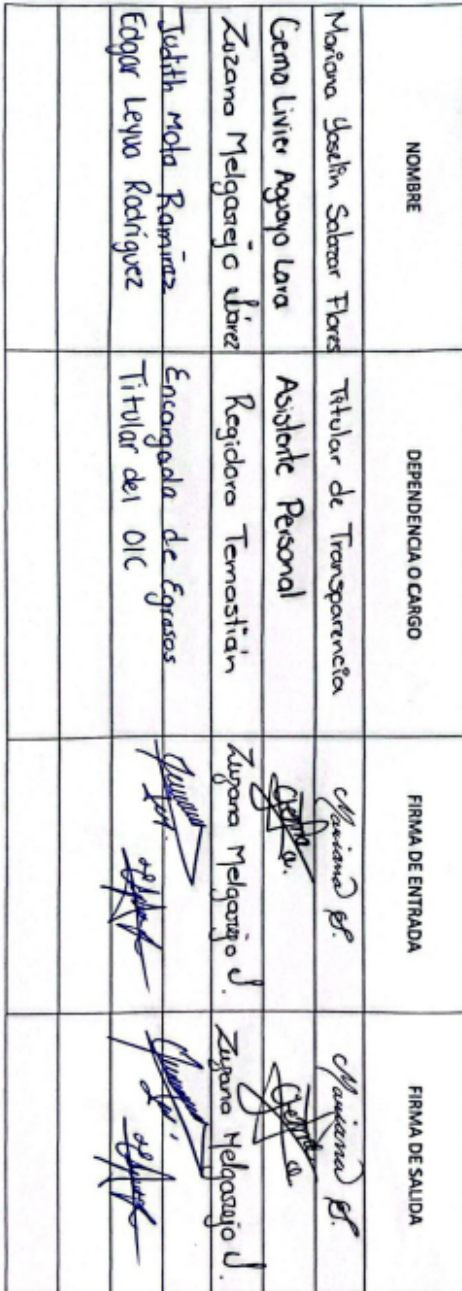 NOMBRE DEPENDENCIA O CARGO FIRMA DE ENTRADA FIRMA DE SALIDA
Mariana Yoselin Salazar Flores Titular de Transparencia Mariana S. Mariana S.
Gema Livier Aguayo Lara Asistente Personal Gema a. Gema a.
Zuzana Melgarejo Juárez Regidora Temastián Zuzana Melgarejo J. Zuzana Melgarejo J.
Judith Mota Ramírez Encargada de Egresos
Edgar Leyva Rodríguez Titular del OIC